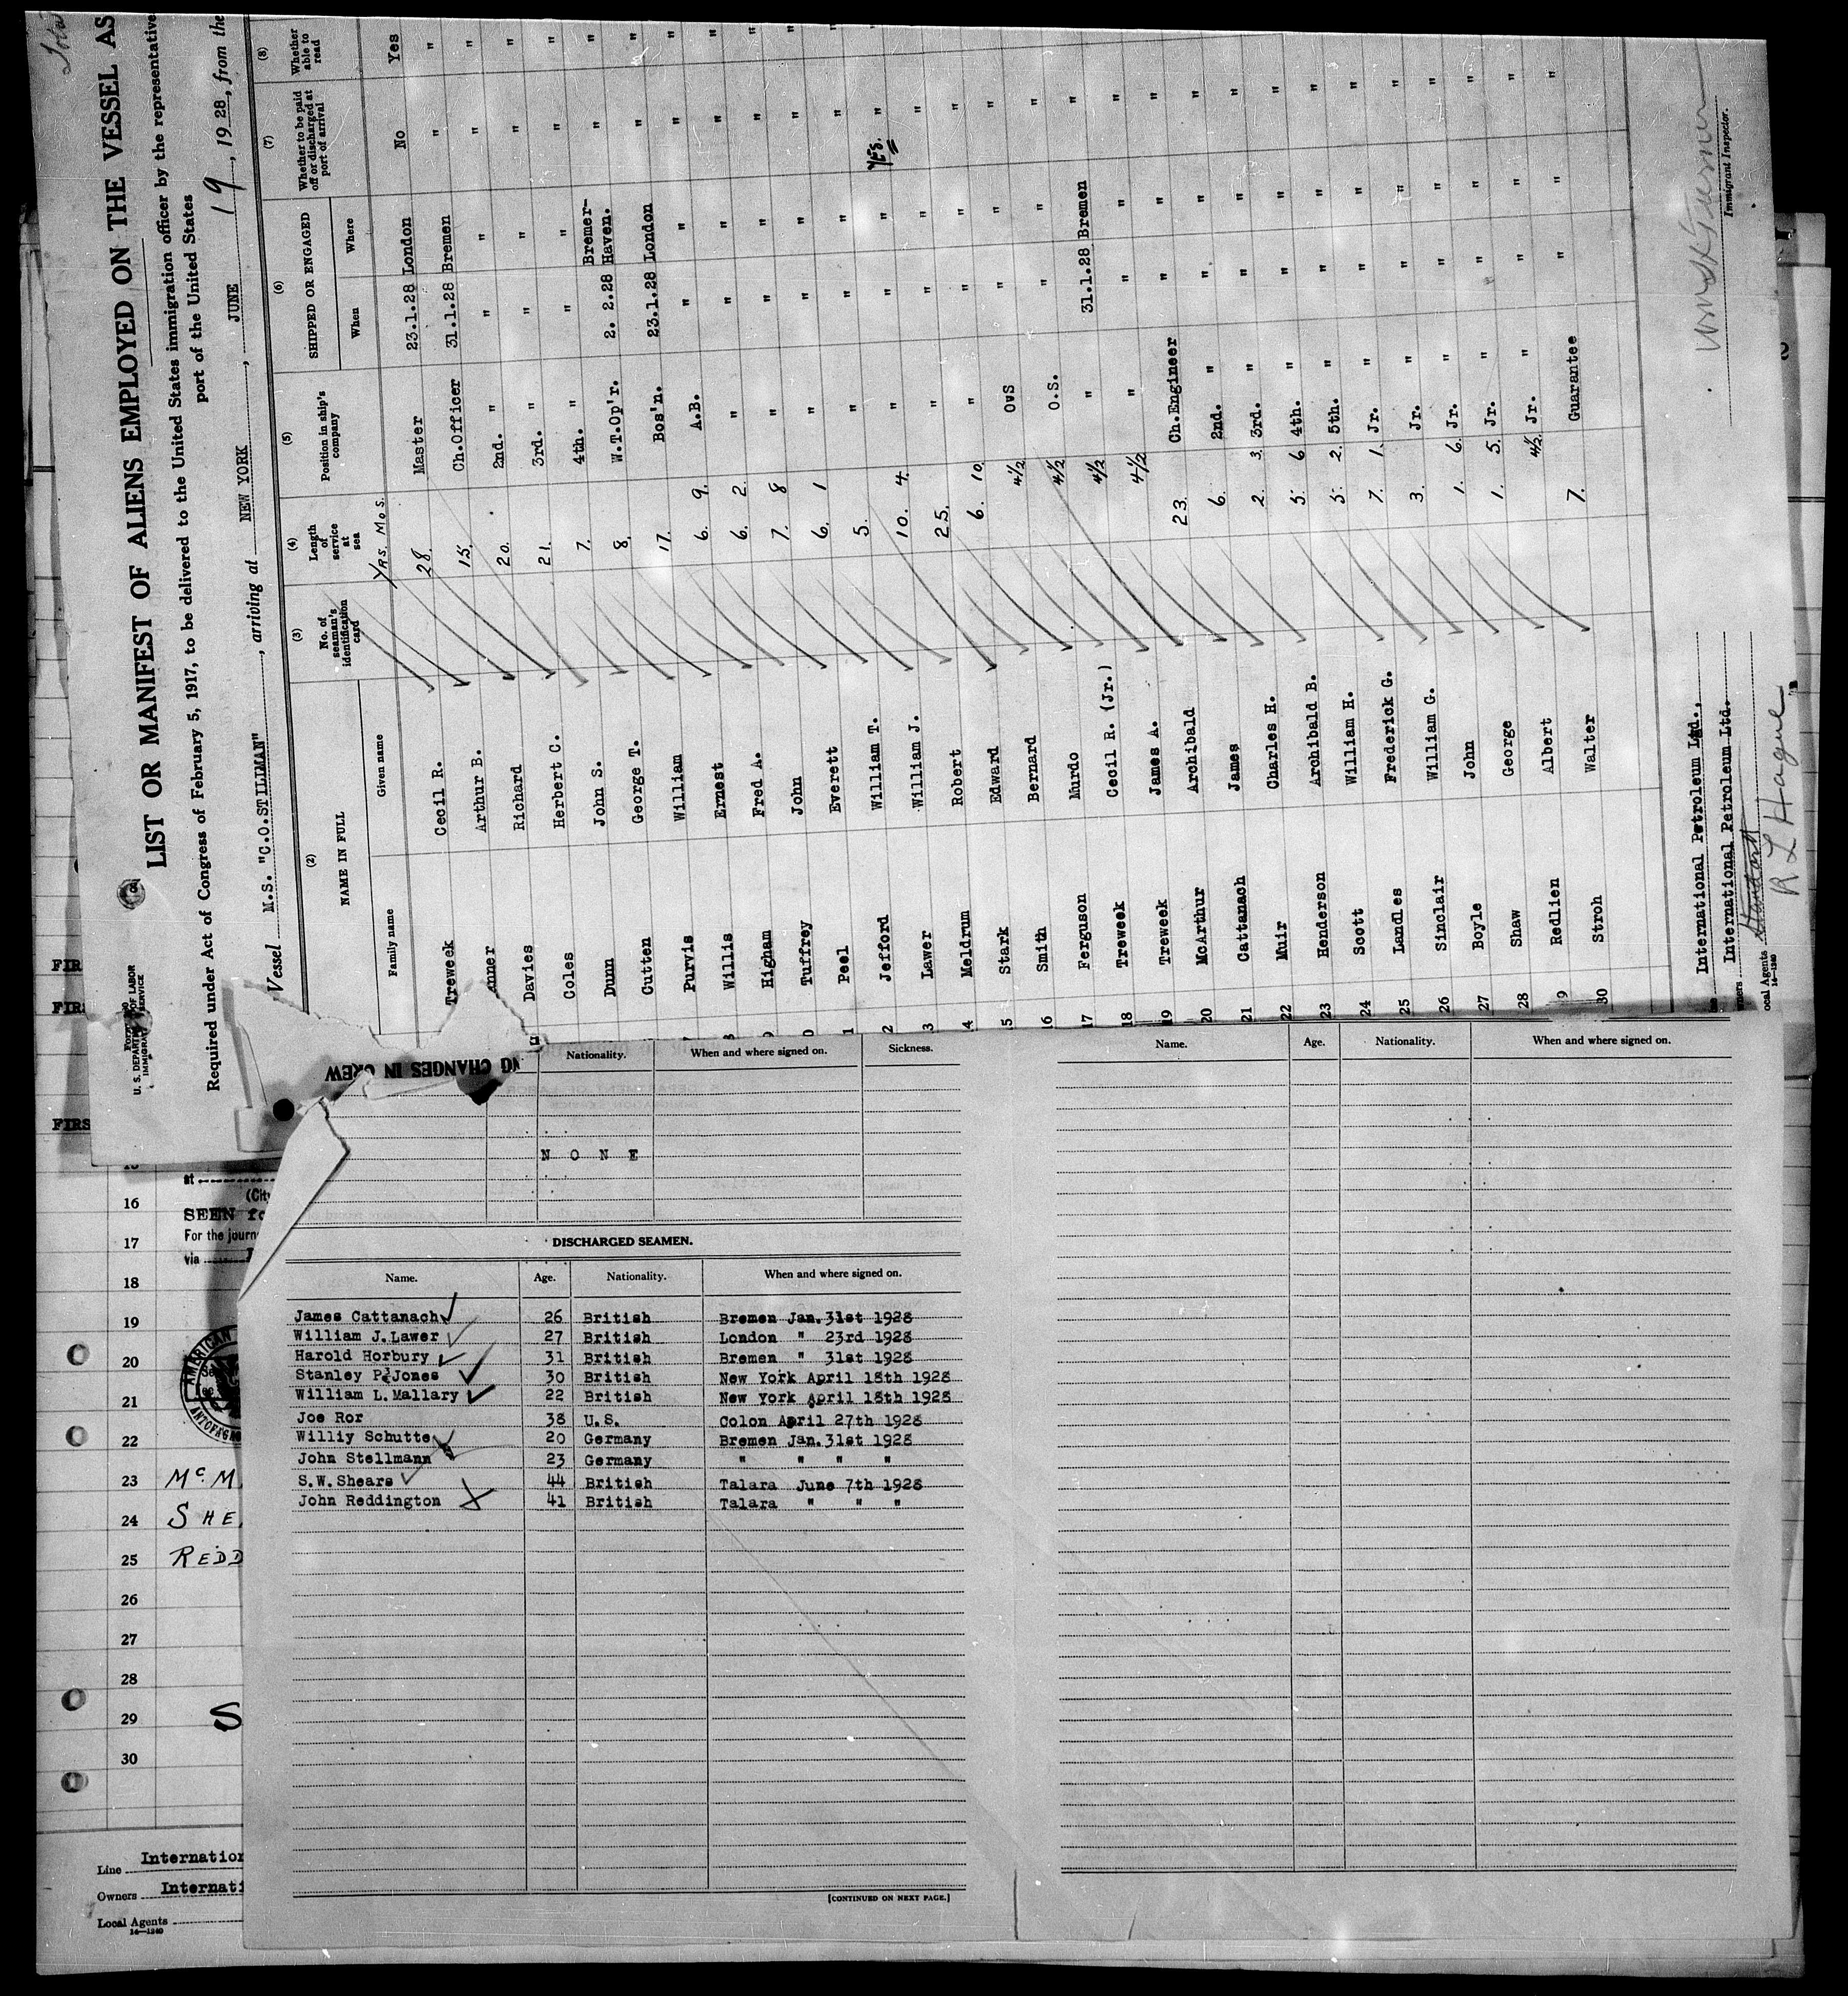 LIST OR MANIFEST OF ALIENS EMPLOYED ON THE VESSEL AS
Required under Act of Congress of February 5, 1917, to be delivered to the United States immigration officer by the representative
port of the United States
Vessel M.S. "C.O.STILLMAN", arriving at NEW YORK, JUNE 19, 1928, from the
U. S. DEPARTMENT OF LABOR
IMMIGRATION SERVICE
(2) (3) (4) (5) (6) (7) (8)
NAME IN FULL
Family name Given name
No. of seaman's identification card
Length of service at sea
Yrs. Mos.
Position in ship's company
SHIPPED OR ENGAGED
When Where
Whether to be paid off or discharged at port of arrival
Whether able to read
Treweek Cecil R. 28. Master 23.1.28 London No Yes
nner Arthur B. 15. Ch.Officer 31.1.28 Bremen " "
Davies Richard 20. 2nd. " " " " "
Coles Herbert C. 21. 3rd. " " " " "
Dunn John S. 7. 4th. " " " " "
Cutten George T. 8. W.T.Op'r. 2. 2.28 Bremer-Haven. " "
7 Purvis William 17. Bos'n. 23.1.28 London " "
8 Willis Ernest 6. 9. A.B. " " " "
9 Higham Fred A. 6. 2. " " " " "
0 Tuffrey John 7. 8 " " " " "
1 Peel Everett 6. 1 " " " " "
2 Jefford William T. 5. " " " " "
3 Lawer William J. 10. 4. " " " Yes. " "
4 Meldrum Robert 25. " " " " "
5 Stark Edward 6. 10. " " " " "
16 Smith Bernard 4½ OvS " " " "
17 Ferguson Murdo 4½ O.S. " " " "
18 Treweek Cecil R. (Jr.) 4½ " 31.1.28 Bremen " "
19 Treweek James A. 4½ " " " " "
20 McArthur Archibald 23. Ch.Engineer " " " "
21 Cattanach James 6. 2nd. " " " " "
22 Muir Charles H. 2. 3. 3rd. " " " " "
23 Henderson Archibald B. 5. 6 4th. " " " " "
24 Scott William H. 5. 2. 5th. " " " " "
25 Landles Frederick G. 7. 1. Jr. " " " " "
26 Sinclair William G. 3. Jr. " " " " "
27 Boyle John 1. 6. Jr. " " " " "
28 Shaw George 1. 5. Jr. " " " " "
9 Redlien Albert 4½ Jr. " " " " "
30 Stroh Walter 7. Guarantee " " " "
International Petroleum Ltd.,
International Petroleum Ltd.
ocal Agents
14—1240
R L Hague
Immigrant Inspector.
NG CHANGES IN CREW
Nationality. When and where signed on. Sickness.
NONE
DISCHARGED SEAMEN.
Name. Age. Nationality. When and where signed on.
James Cattanach 26 British Bremen Jan. 31st 1928
William J. Lawer 27 British London " 23rd 1928
Harold Horbury 31 British Bremen " 31st 1928
Stanley P. Jones 30 British New York April 18th 1928
William L. Mallary 22 British New York April 18th 1928
Joe Ror 38 U.S. Colon April 27th 1928
Williy Schutte 20 Germany Bremen Jan. 31st 1928
John Stellmann 23 Germany " " " "
S.W. Shears 44 British Talara June 7th 1928
John Reddington 41 British Talara " " "
[CONTINUED ON NEXT PAGE.]
Name. Age. Nationality. When and where signed on.
FIR
FIR
FIRS
at
(City
SEEN fo
For the journ
via
AMERICAN
ANTOFAGA
16
17
18
19
20
21
22
23 McM
24 SHE
25 REDD
26
27
28
29
30
S
Line Internation
Owners Internati
Local Agents
14—1240